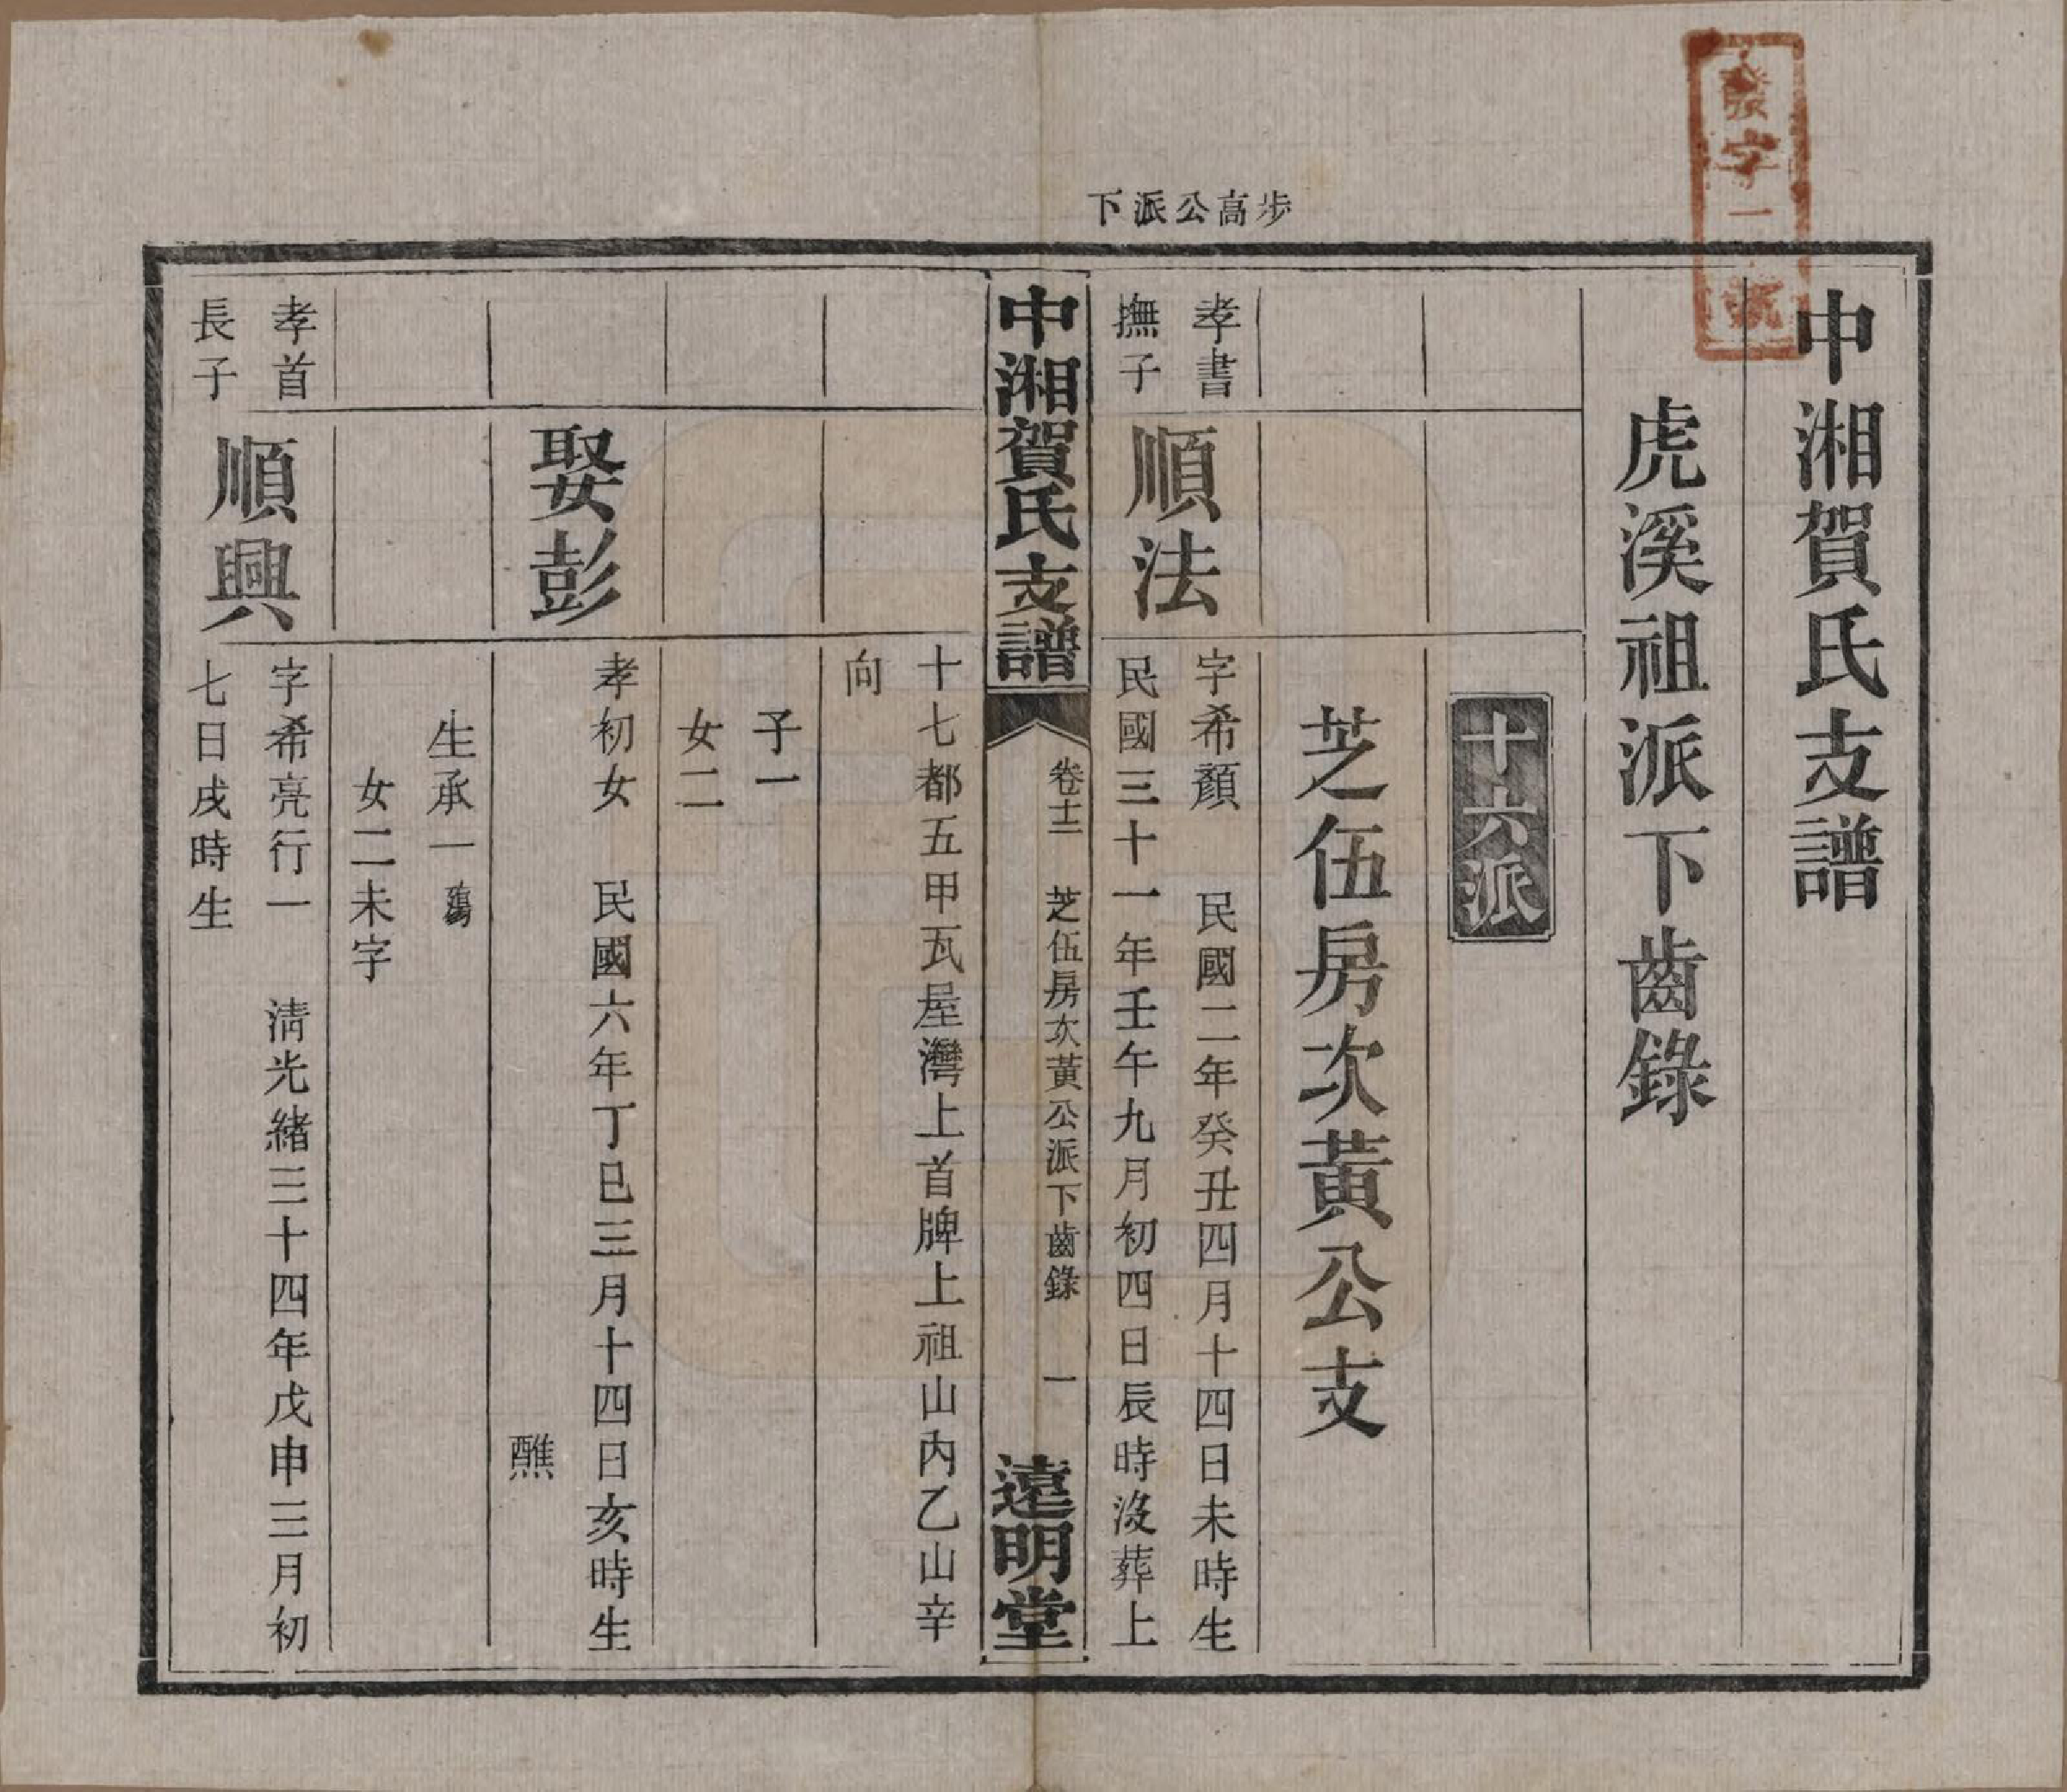 步高公派下
發字一號
中湘賀氏支譜
虎溪祖派下齒錄
十六派
芝伍房次黃公支
孝書
撫子
順法
字希顏 民國二年癸丑四月十四日未時生
民國三十一年壬午九月初四日辰時沒葬上
中湘賀氏支譜
卷十二 芝伍房次黃公派下齒錄 一
遠明堂
十七都五甲瓦屋灣上首牌上祖山內乙山辛
向
子一
女二
娶彭
孝初女 民國六年丁巳三月十四日亥時生
醮
生承一
女二未字
孝首
長子
順興
字希亮行一 清光緒三十四年戊申三月初
七日戌時生